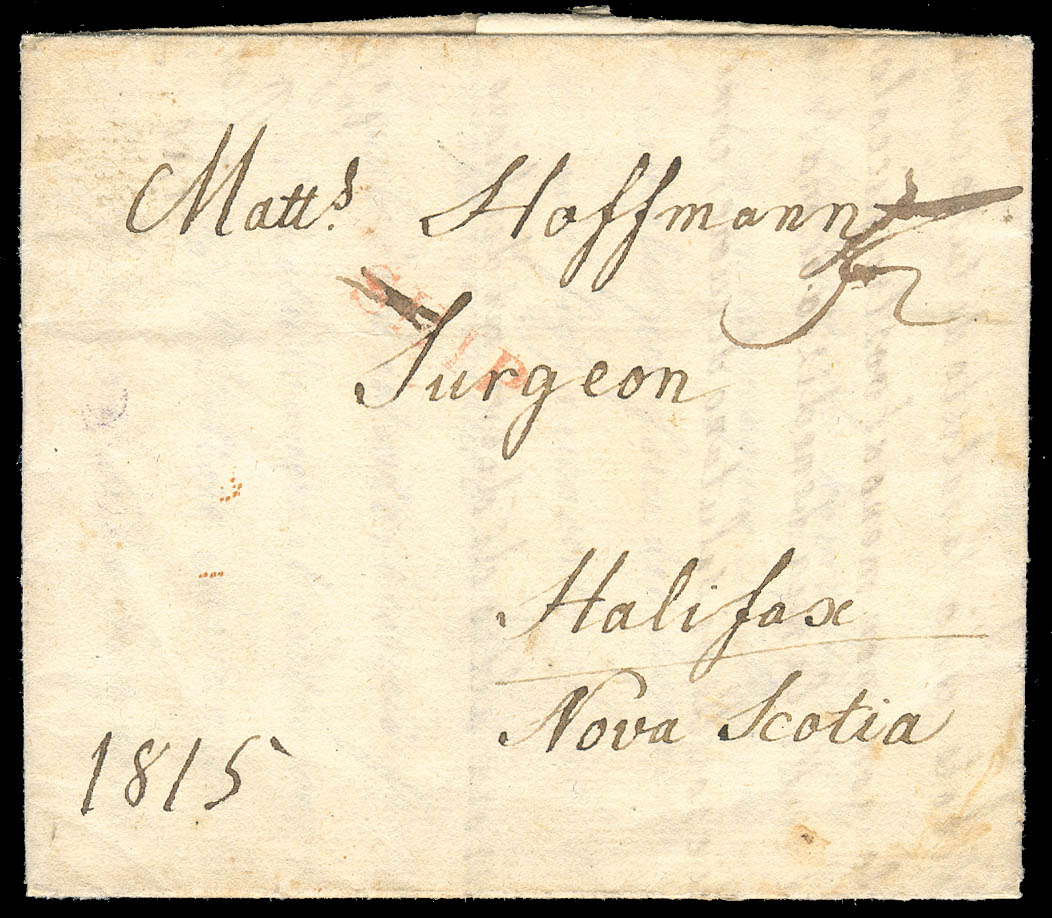 Matts. Hoffmann
SHIP
Surgeon
Halifax
Nova Scotia
1815